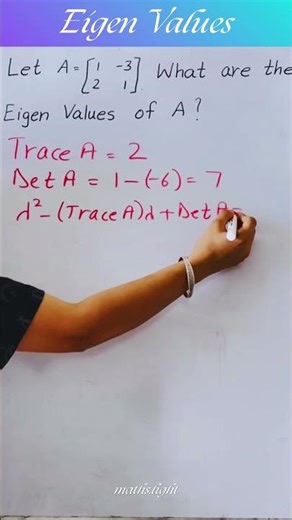 Eigen Values
Let A = [1 -3
2 1] What are the
Eigen Values of A?
Trace A = 2
Det A = 1-(-6) = 7
λ² - (Trace A)λ + Det A =
maths.light